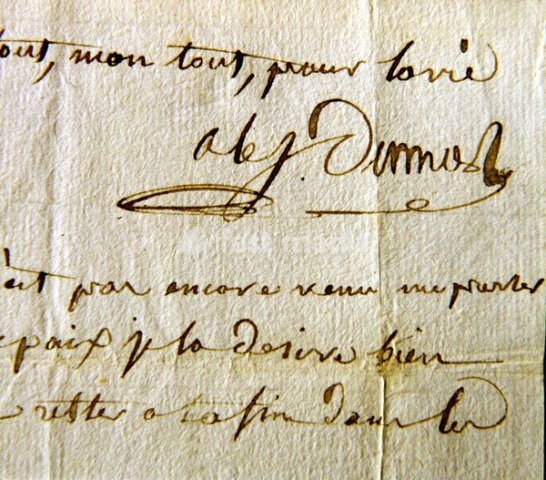 tout, mon tout, pour la vie
alex. Dumas
est pas encore venu me parler
paix je la desire bien
rester a la fin dans les